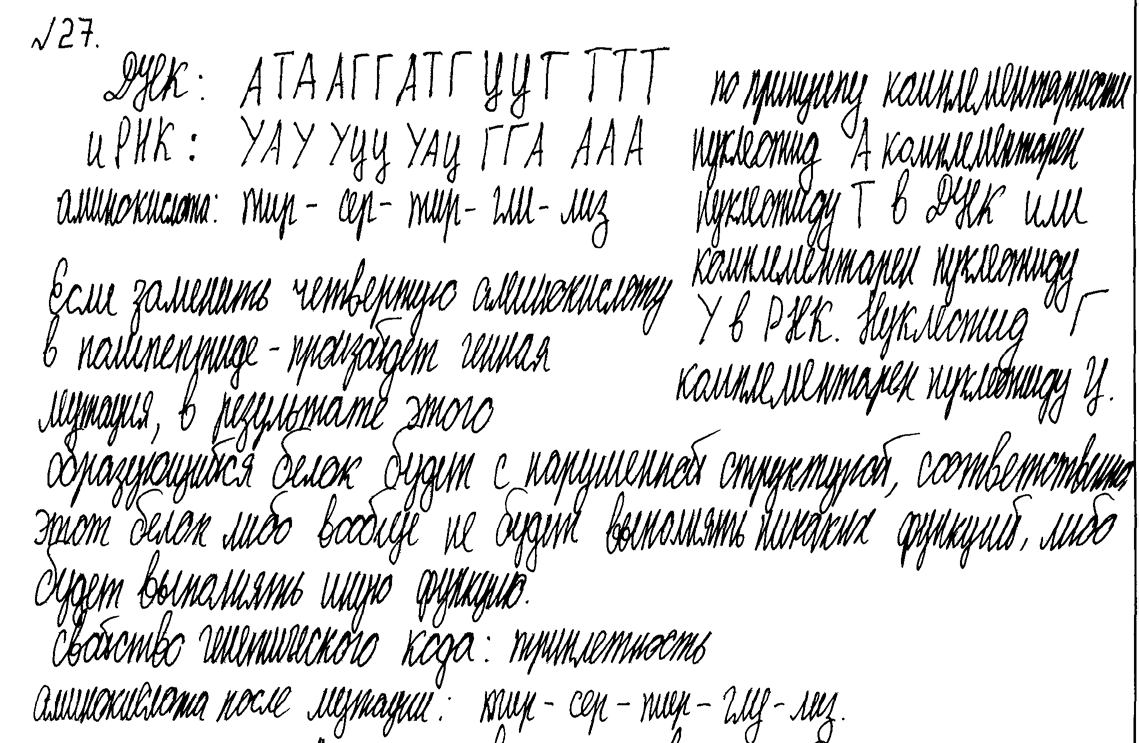 √27.
ДНК: АТА АГГ АТГ ЦЦТ ТТТ
иРНК: УАУ УЦЦ УАЦ ГГА ААА
аминокислота: тир - сер - тир - гли - лиз
по принципу комплементарности
нуклеотид А комплементарен
нуклеотиду Т в ДНК или
комплементарен нуклеотиду
У в РНК. Нуклеотид Г
комплементарен нуклеотиду Ц.
Если заменить четвертую аминокислоту
в полипептиде - произойдет генная
мутация, в результате этого
образующийся белок будет с нарушенной структурой, соответственно
этот белок либо вообще не будет выполнять никаких функций, либо
будет выполнять иную функцию.
свойство генетического кода: триплетность
аминокислота после мутации: тир - сер - тир - глу - лиз.